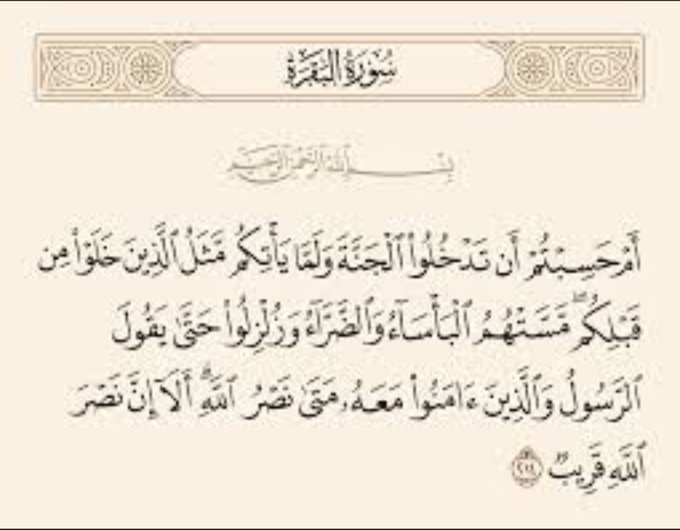 سُورَةُ البَقَرَةِ
بِسْمِ اللَّهِ الرَّحْمَٰنِ الرَّحِيمِ
أَمْ حَسِبْتُمْ أَن تَدْخُلُوا۟ ٱلْجَنَّةَ وَلَمَّا يَأْتِكُم مَّثَلُ ٱلَّذِينَ خَلَوْا۟ مِن
قَبْلِكُم ۖ مَّسَّتْهُمُ ٱلْبَأْسَآءُ وَٱلضَّرَّآءُ وَزُلْزِلُوا۟ حَتَّىٰ يَقُولَ
ٱلرَّسُولُ وَٱلَّذِينَ ءَامَنُوا۟ مَعَهُۥ مَتَىٰ نَصْرُ ٱللَّهِ ۗ أَلَآ إِنَّ نَصْرَ
ٱللَّهِ قَرِيبٌ ٢١٤